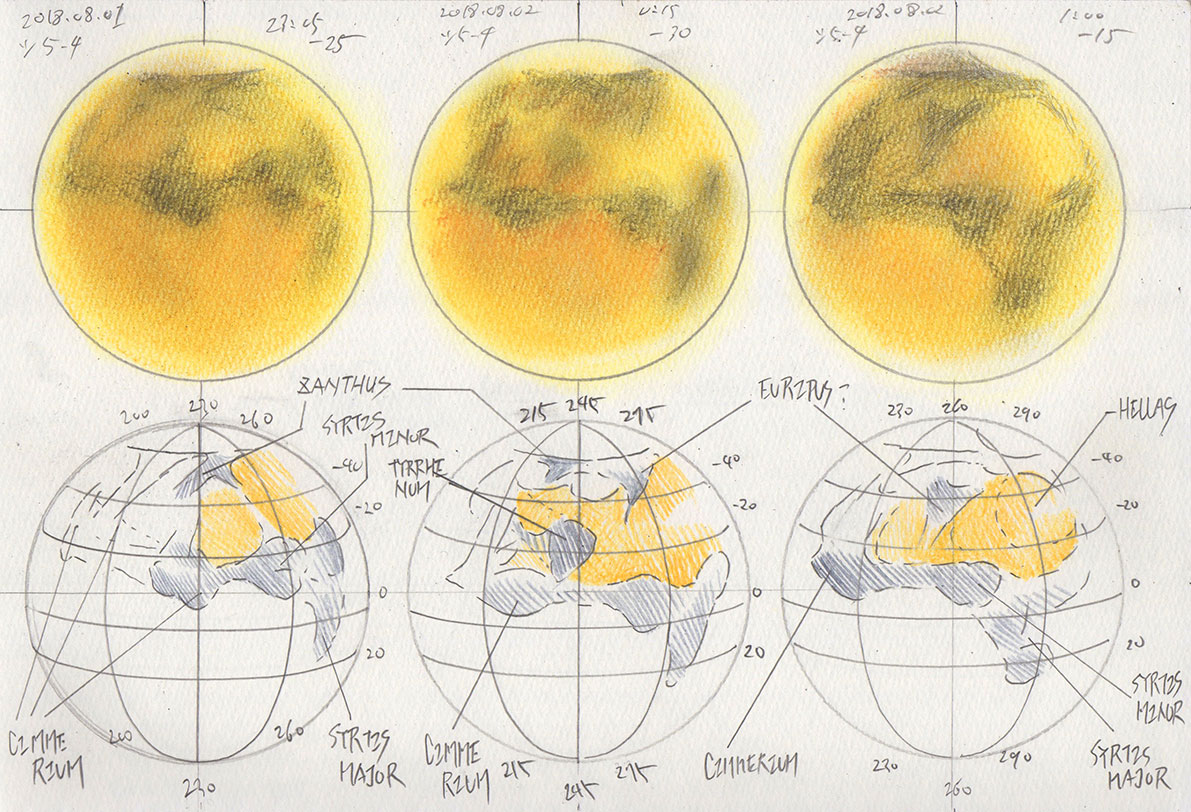 2018.08.01
23:05
-25
2018.08.02
0:15
-30
2018.08.02
1:00
-15
XANTHUS
EURIPUS?
200
230
260
SYRTIS
MINOR
215
245
275
230
260
290
HELLAS
-40
TYRRHE
NUM
-40
-40
-20
-20
-20
0
0
0
20
20
20
CIMME
RIUM
200
260
SYRTIS
MAJOR
230
CIMME
RIUM
215
275
245
CIMMERIUM
230
290
260
SYRTIS
MINOR
SYRTIS
MAJOR